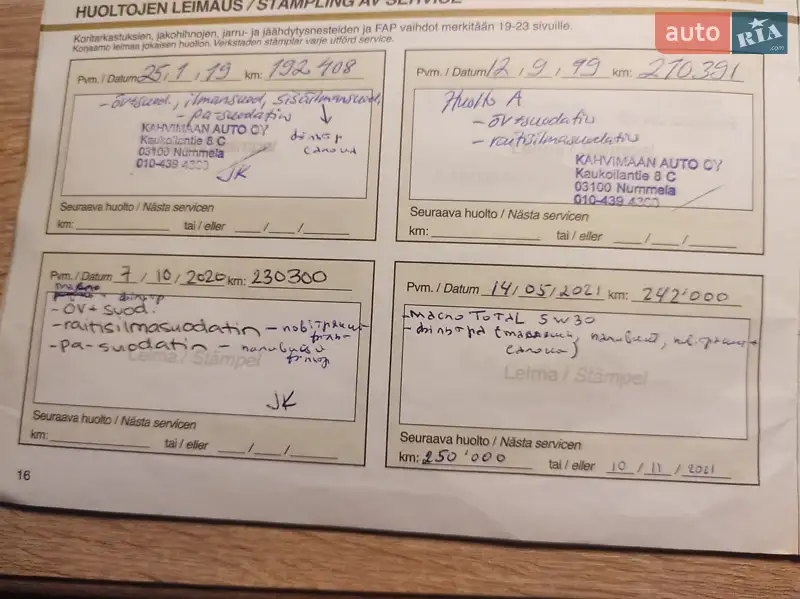 HUOLTOJEN LEIMAUS / STÄMPLING AV SERVICE
Koritarkastuksien, jakohihnojen, jarru- ja jäähdytysnesteiden ja FAP vaihdot merkitään 19-23 sivuille.
Korjaamo leimaa jokaisen huollon. Verkstaden stämplar varje utförd service.
auto RIA .com
Pvm. / Datum 25 / 1 / 19 km: 192 408
- öv+suod, ilmansuod, sisäilmansuod,
- pa-suodatin
фільтр
салона
KAHVIMAAN AUTO OY
Kaukoilantie 8 C
03100 Nummela
010-439 4300
JK
Seuraava huolto / Nästa servicen
km: tai / eller / /
Pvm. / Datum 12 / 9 / 99 km: 210.391
Huolto A
- öv+suodatin
- raitisilmasuodatin
KAHVIMAAN AUTO OY
Kaukoilantie 8 C
03100 Nummela
010-439 4300
Seuraava huolto / Nästa servicen
km: tai / eller / /
Pvm. / Datum 7 / 10 / 2020 km: 230300
масло фільтр
- öv+ suod.
- raitisilmasuodatin - повітряний
фільтр
- pa-suodatin -
Leima / Stämpel
JK
Seuraava huolto / Nästa servicen
km: tai / eller / /
Pvm. / Datum 14 / 05 / 2021 km: 242'000
- масло TOTAL 5W30
- фільтра (масляний, паливний, повітряний +
салона)
Leima / Stämpel
Seuraava huolto / Nästa servicen
km: 250'000 tai / eller 10 / 11 / 2021
16